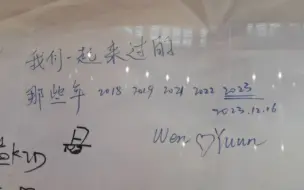 我们一起来过的
那些年 2018 2019 2021 2022 2023
2023.12.06
Wen ♡ Yuun